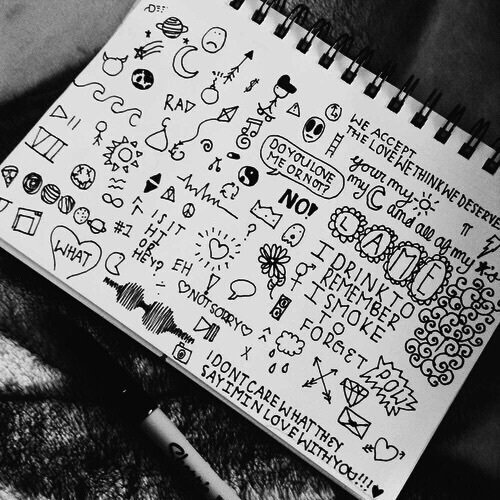 RAD
VII
WE ACCEPT
THE LOVE WE THINK WE DESERVE
your my
my and all of my
DO YOU LOVE
ME OR NOT?
NO!
LAME
π
#1
IS IT
HI
OR
HEY?
?
EH
!
WHAT
♡NOT SORRY♡
I DRINK TO
REMEMBER
I SMOKE
TO
FORGET
X
POW
I DONT CARE WHAT THEY
SAY IM IN LOVE WITH YOU!!!
$